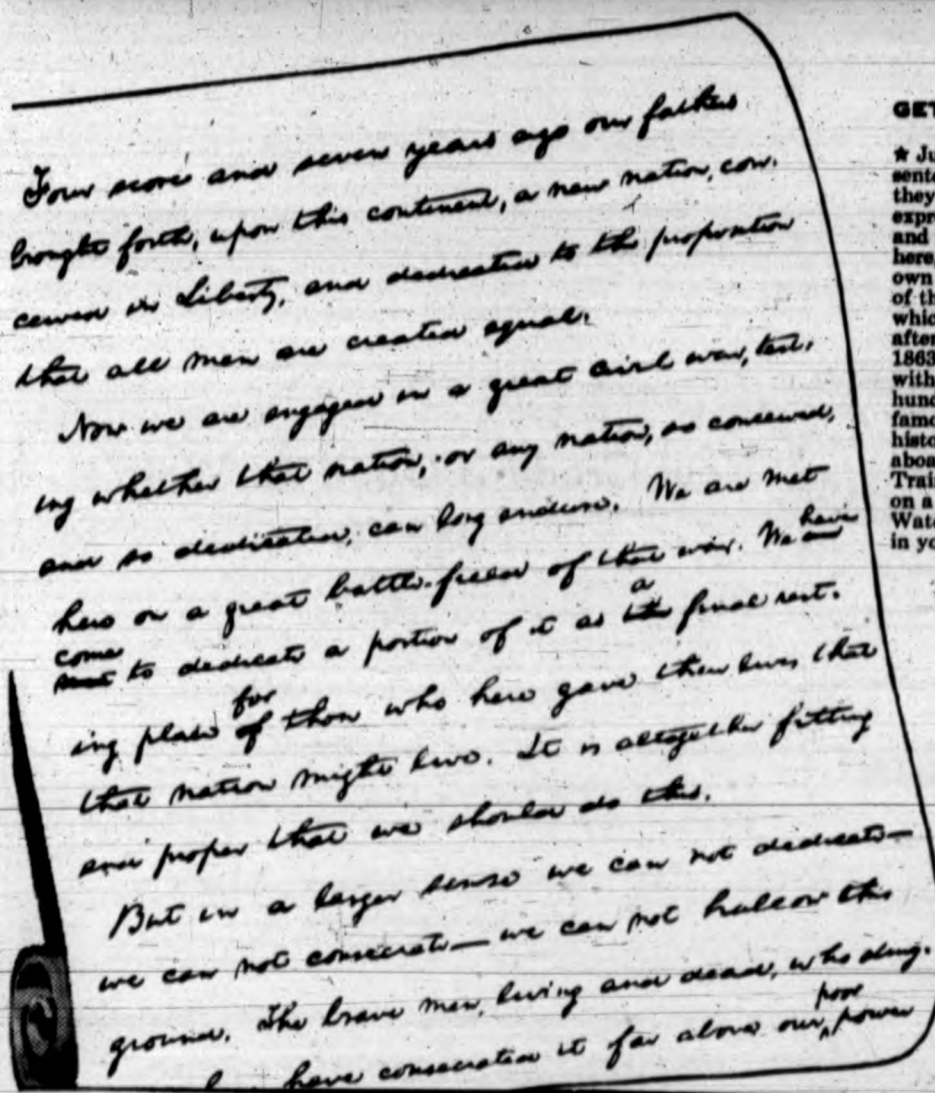 Four score and seven years ago our fathers
brought forth, upon this continent, a new nation, con-
ceived in Liberty, and dedicated to the proposition
that all men are created equal.
Now we are engaged in a great civil war, test-
ing whether that nation, or any nation, so conceived,
and so dedicated, can long endure. We are met
here on a great battle-field of that war. We have
come to dedicate a portion of it as a final rest-
for
ing place of those who here gave their lives that
that nation might live. It is altogether fitting
and proper that we should do this.
But in a larger sense we can not dedicate—
we can not consecrate— we can not hallow this
ground. The brave men, living and dead, who strug-
poor
have consecrated it far above our power
GET
★ Ju
sente
they
expr
and
here,
own
of th
whic
after
1863
with
hund
famo
histo
aboa
Train
on a
Wate
in yo